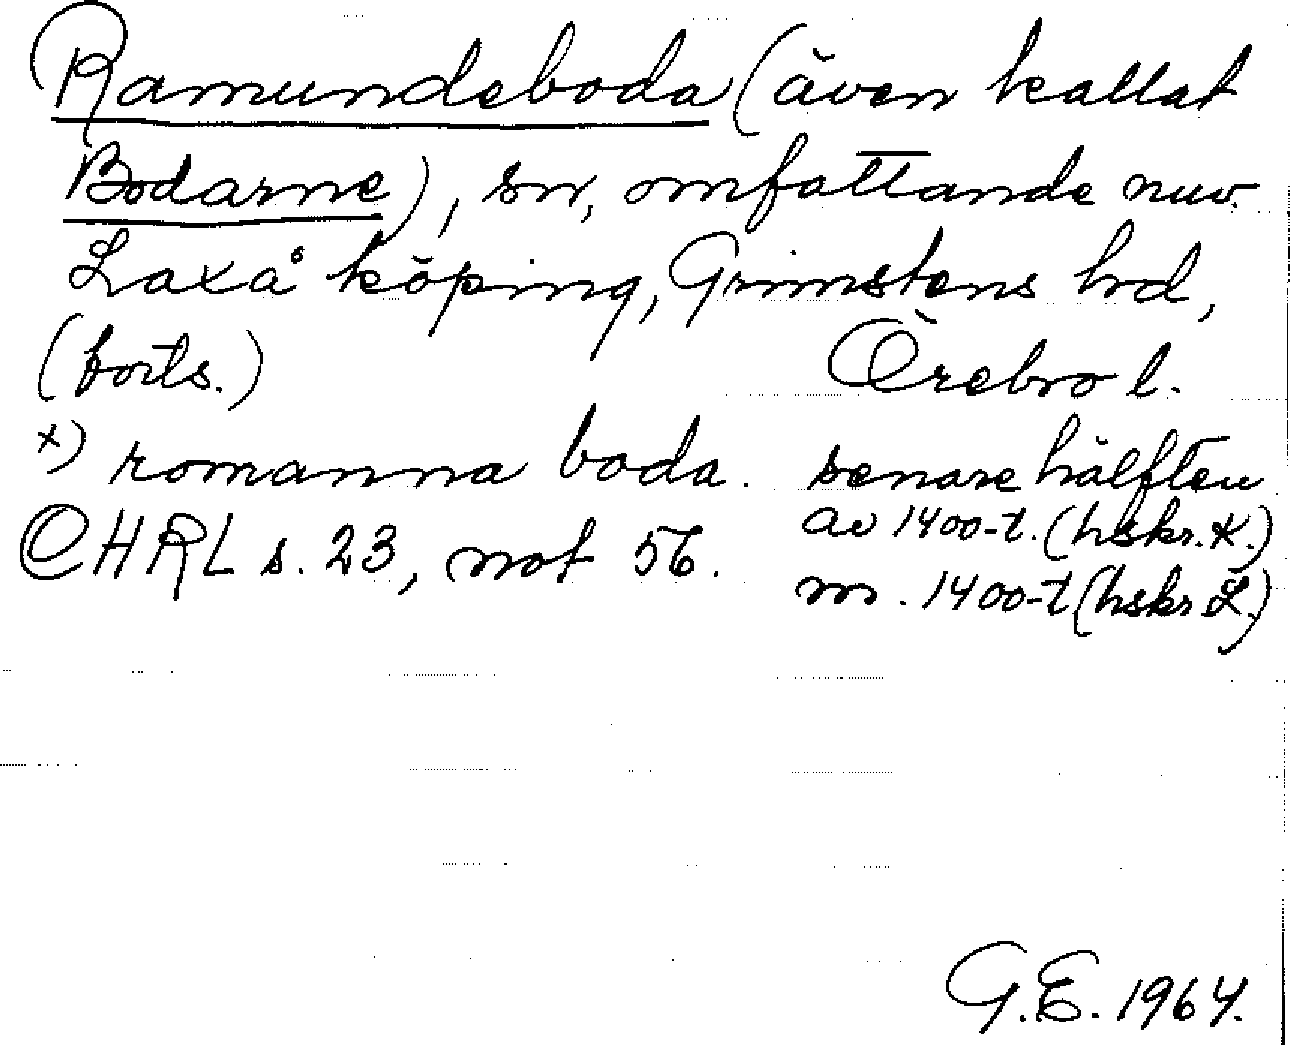 Ramundeboda (även kallat
Bodarne), sn, omfattande nuv.
Laxå köping, Grimstens hd,
(forts.) Örebro l.
x) romanna boda. senare hälften
av 1400-t. (hskr. K.)
CHRL s. 23, not 56.
m. 1400-t (hskr L.)
G.E. 1964.